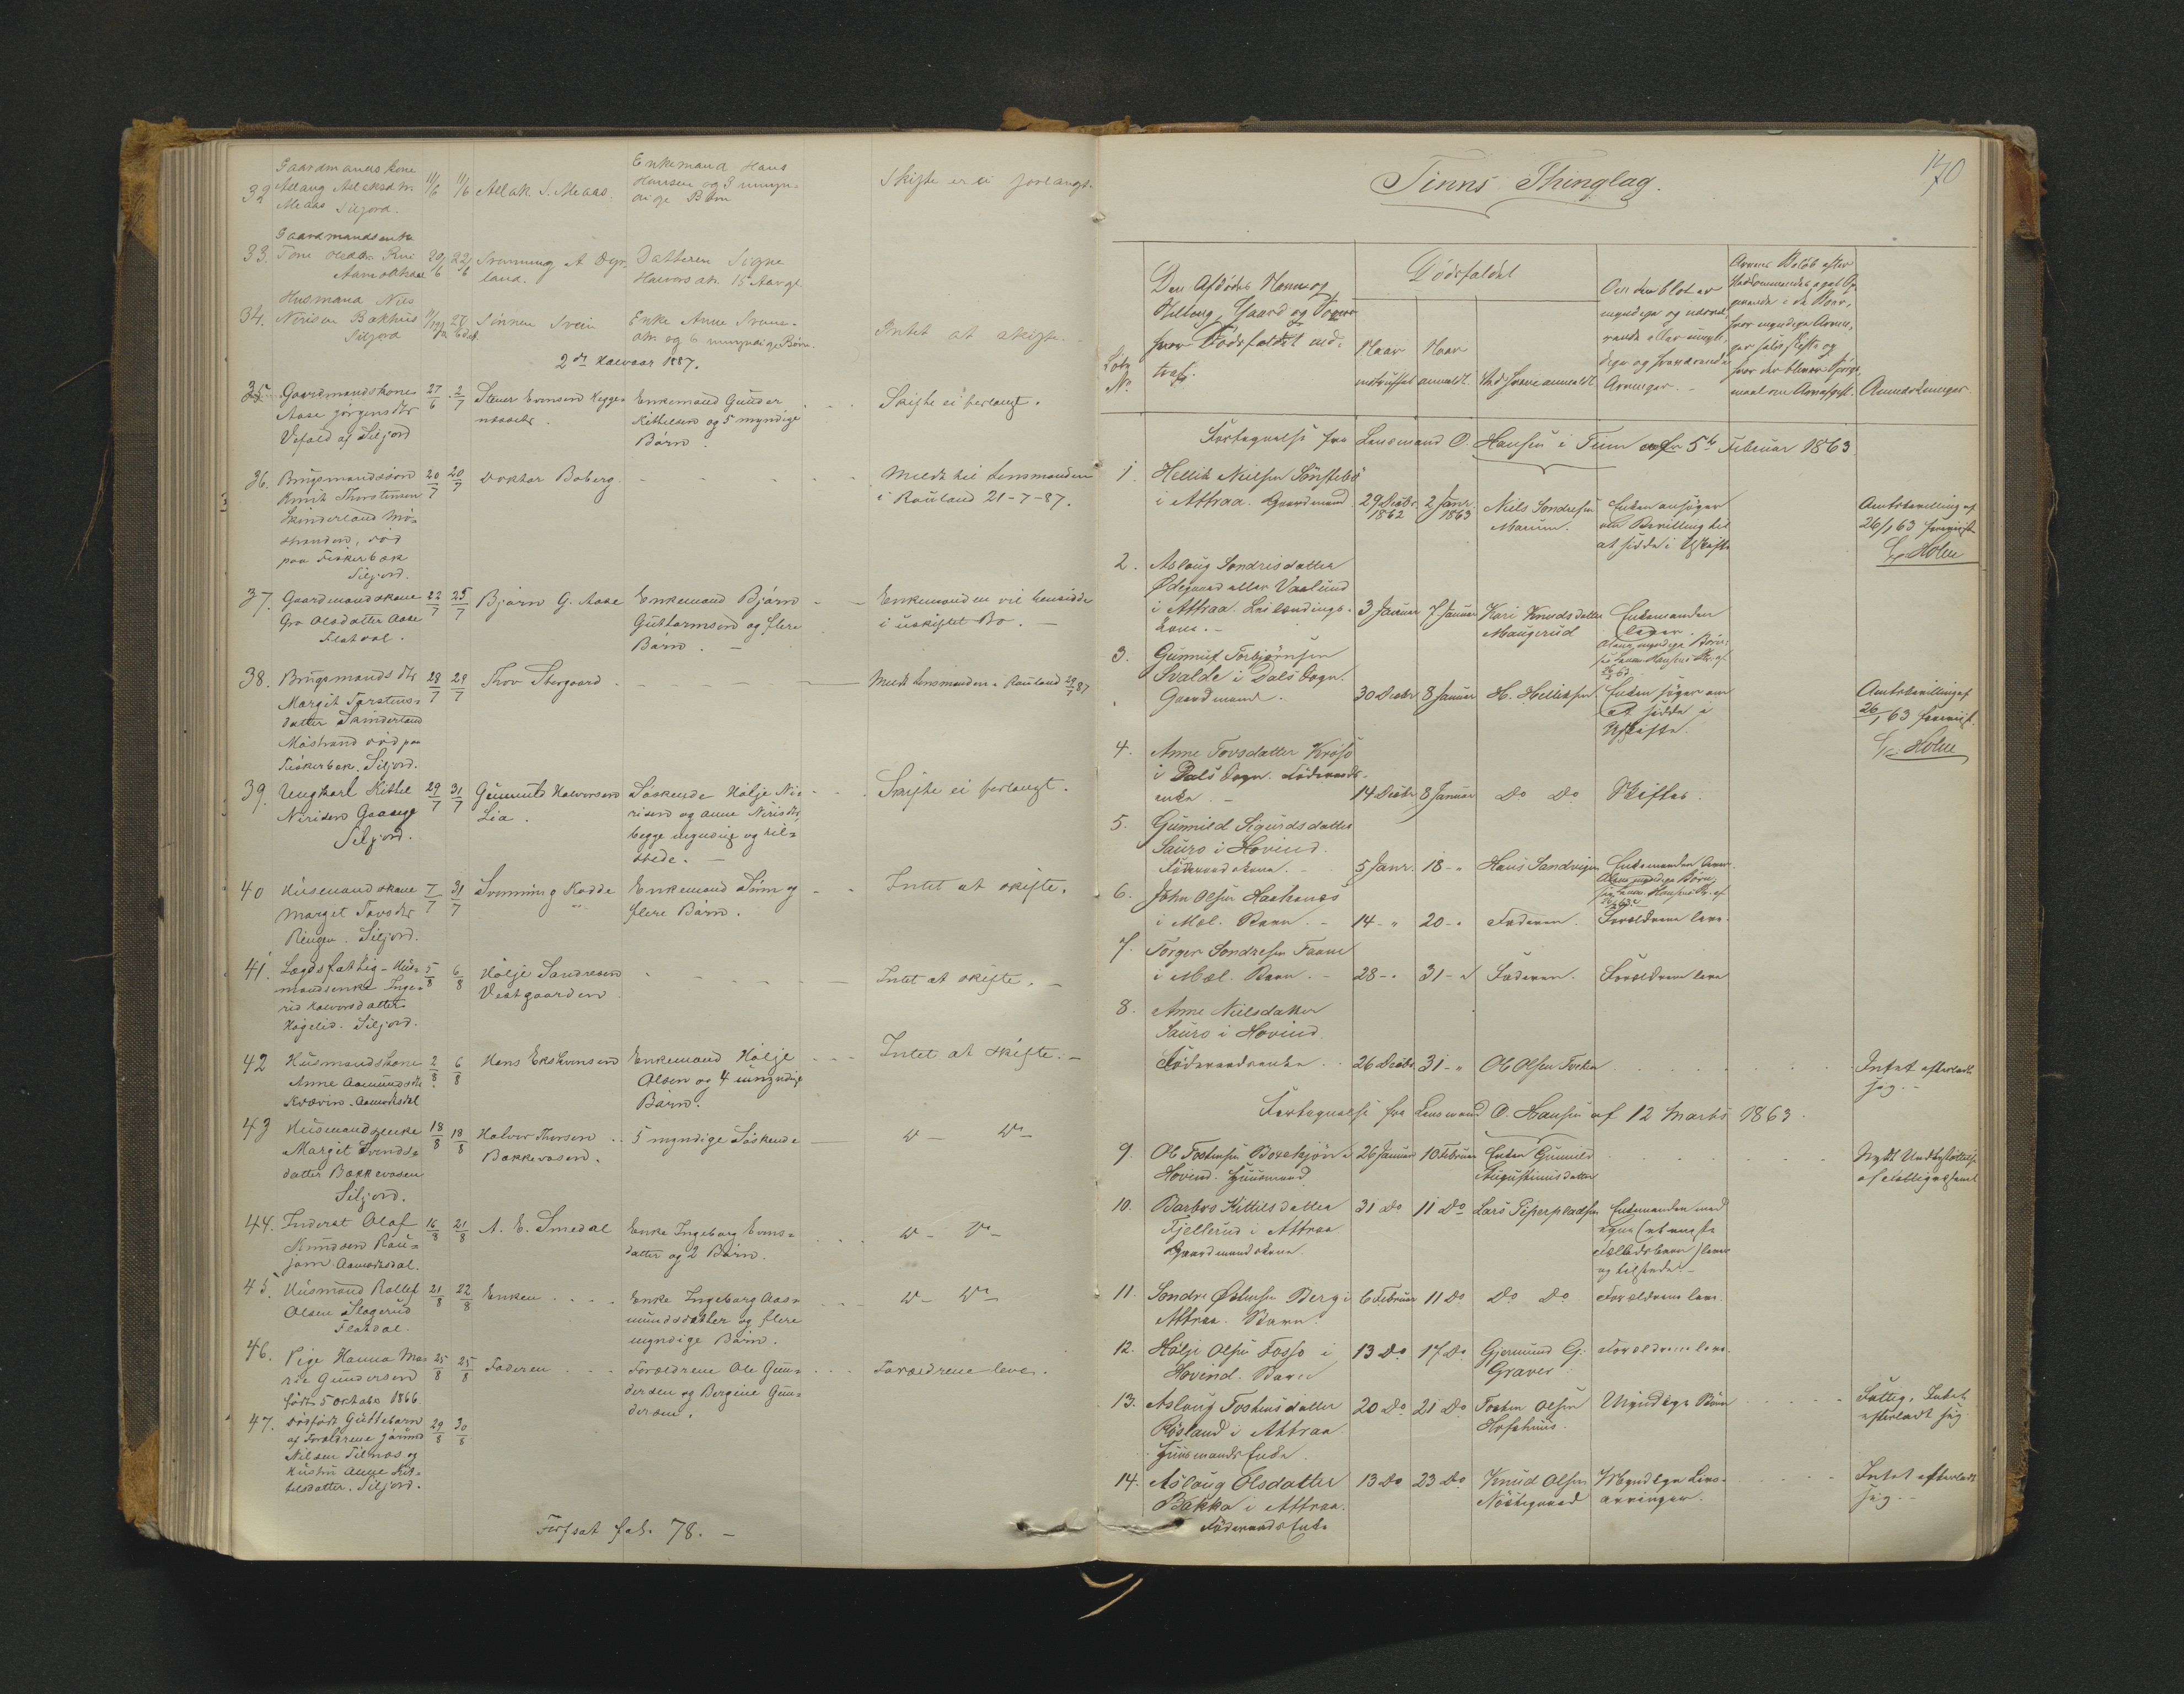 Gaardmands kone
32 Aslaug Aslaksdtr
Meaas Siljord.
11/6 11/6 Aslak S. Meaas.
Enkemand Hans
Hansen og 3 umyn-
dige Børn
Skifte er ei forlangt.
Gaardmandsenke
33. Tone
29/6 22/6 Svenning A
land.
Datteren Signe
Halvorsdtr. 15 Aar gl.
Husmand Nils
34. Nirisen Bakhus
Siljord
Sønnen Svein
Enke Anne
og 6 umyndige Børn.
Intet at skifte.
2det Halvaar 1887.
35 Gaardmandskone
Aase Jørgensdtr
Vefald af Siljord
27/6 2/7
Enkemand Gunder
Kittelsen og 5 myndige
Børn.
Skifte ei forlangt.
36. Brugsmandssøn
Knut Thorstensen
Skinderland Mø-
stranden, død
paa Fiskerbæk
Siljord.
20/7 20/7 Doktor Boberg.
Meldt til Lensmanden
i Rauland 21-7-87.
37. Gaardmandskone
Gro Olsdatter Aase
Flatdal.
22/7 25/7 Bjørn G. Aase
Enkemand Bjørn
Guttormsen og flere
Børn. -
Enkemanden vil hensidde
i uskiftet Bo. -
38. Brugsmandsdtr
Margit Torstens-
datter Skinderland
Møstrand død paa
Fiskerbæk. Siljord.
28/7 29/7 Thov Stergaard
Meldt Lensmanden i Rauland 29/7 87
39. Ungkarl Kittel
Nirisen Graave
Siljord.
29/7 31/7 Gunnuld Halvorsen
Lia.
Søskende Hølje Ni-
risen og Anne Nirisdtr,
begge myndig og til-
stede. -
Skifte ei forlangt.
40 Husmandskone
Marget Tovsdtr
Ringen. Siljord.
7/7 31/7 Svenning Kodde
Enkemand Søm og
flere Børn.
Intet at skifte.
41. Lægdsfattig-Hus-
mandsenke Inge-
rid Halvorsdatter
Høgelid. Siljord.
5/8 6/8 Hølje Sandresen
Vestgaarden
Intet at skifte. -
42 Husmandskone
Anne Aamundsdtr
Kvævin. Aamotsdal
2/8 6/8 Hans
Enkemand Hølje
Olsen og 4 umyndige
Børn.
Intet at skifte. -
43 Husmandsenke
Margit Svends-
datter Bakkevasen
Siljord.
18/8 18/8 Halvor Thorsen
Bakkevasen.
5 myndige Søskende
44. Inderst Olaf
Knudsen Rau-
jom Aamotsdal.
16/8 21/8 A. E. Smedal
Enke Ingeborg Evens-
datter og 2 Børn.
45. Husmand Rollef
Olsen Slogerud
Flatdal.
21/8 22/8 Enken
Enke Ingeborg Aas-
mundsdatter og flere
myndige Børn.
46. Pige Hanna Ma-
rie Gundersen
født 5 oktober 1866
25/8 25/8 Faderen
Forældrene Ole Gun-
dersen og Bergine Gun-
dersen.
Forældrene leve.
47. Dødfødt Guttebarn
af Forældrene Jørund
Nilsen Tilnæs og
Hustru Aase Kit-
tilsdatter. Siljord.
29/8 30/8
Fortsat fol. 78. -
170
Tinns Thinglag.
Løbe
No
Den Afdødes Navn og
Stilling, Gaard og Sogn
hvor Dødsfaldet ind-
traf.
Dødsfaldet
Naar
indtruffet
Naar
anmeldt.
Ved hvem anmeldt
Om den blot er
myndige og nærvæ-
rende eller umyn-
dige og fraværende
Arvinger. -
Anmærkninger.
Fortegnelse fra Lensmand O. Hansen i Tinn af 5te Februar 1863
1. Hellik Nielsen Sønstebø
i Attraa. Gaardmand
29 Decbr 1862 2 Janr. 1863
Niels Sondresen
Maurun.
Enken ansøger
om Bevilling til
at sidde i Uskifte
Amtsbevilling af
26/1 63 foreviist
Holm
2. Aslaug Sondrisdatter
Ødegaard eller Vaalund
i Attraa. Leilændings-
kone. -
3 Januar 7 Januar Kari Knudsdatter
Maugerud
Enkemanden
lever.
3. Gunnuf Torbjørnsen
Svalde i Dals Sogn.
Gaardmand.
30 Decbr 8 Januar H. Helliksen
Enken søger om
at sidde i
Uskifte.
Amtsbevilling af
26/1 63 foreviist.
Holm
4. Anne Tovsdatter Krosso
i Dals Sogn. Føderaads-
enke. -
14 Decbr 8 Januar Do Do Skiftes.
5. Gunnild Sigurdsdatter
Sauro i Hovind.
Føderaadskone. -
5 Janr. 18 - " Hans Sandvigen
6. John Olsen Haakanæs
i Mæl. Barn. -
14 - " 20 - " Faderen. Forældrene leve.
7. Torger Sondresen Faane
i Mæl. Barn. -
28 - " 31 - " Faderen. Forældrene leve
8. Anne Nielsdatter
Sauro i Hovind.
Føderaadsenke
26 Decbr 31 - " Ole Olsen
Intet efterladt
sig. -
Fortegnelse fra Lensmand O. Hansen af 12 Marts 1863.
9. Ole Fostensen
Hovind. Huusmand
26 Januar 10 Februar Enken Gunnild
Augustinusdatter
10. Barbro Kittilsdatter
Fjellerud i Attraa
Gaardmandskone.
31 Do 11 Do Lars Piperpladsen
Enkemanden med
og tilstede. -
11. Sondre Østensen Berg i
Attraa. Barn.
6 Februar 11 Do Do Do Forældrene leve.
12. Hølje Olsen Fosso i
Hovind. Barn
13 Do 17 Do Gjermund G.
Graver
Forældrene leve.
13. Aslaug Fostensdatter
Røsland i Attraa.
Huusmands Enke.
20 Do 21 Do Fosten Olsen
Umyndige Børn
Fattig. Intet
efterladt sig
14. Aslaug Olsdatter
Bakka i Attraa.
Føderaads Enke
13 Do 23 Do Knud Olsen
Myndige Livs-
arvinger.
Intet efterladt
sig. -